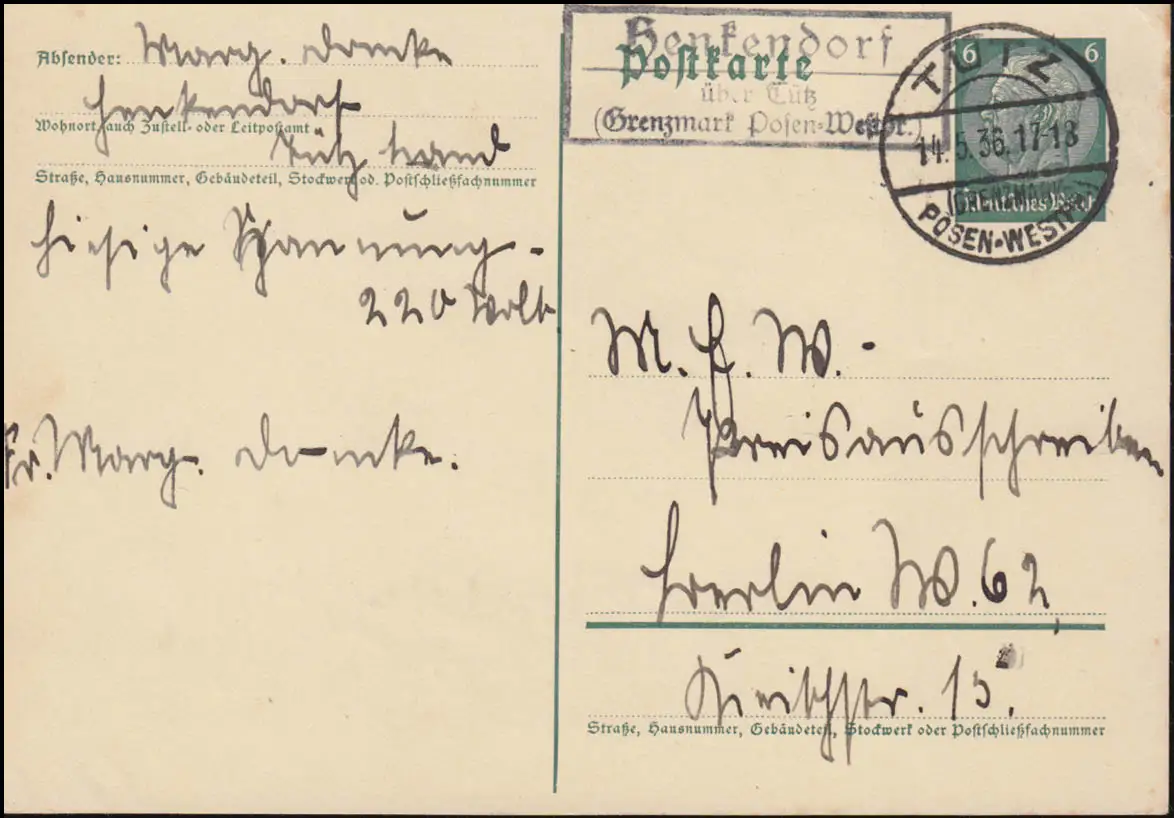 Absender: Marg. Domke
Henkendorf
Wohnort, auch Zustell- oder Leitpostamt
Tütz Land
Straße, Hausnummer, Gebäudeteil, Stockwerk od. Postschließfachnummer
hiesige Spannung -
220 Volt
Fr. Marg. Domke.
Henkendorf
über Tütz
(Grenzmark Posen-Westpr.)
Postkarte
TÜTZ
14.5.36.17-18
(GRENZMARK
POSEN-WESTPR.)
6 6
Deutsches Reich
M. E. W. -
Preisausschreiben
Berlin W. 62
15.
Straße, Hausnummer, Gebäudeteil, Stockwerk oder Postschließfachnummer